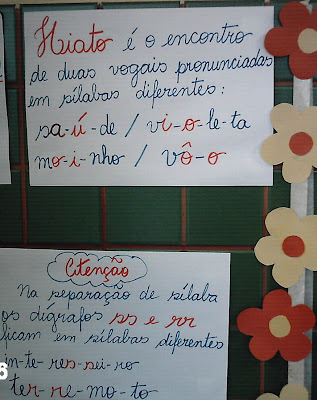 Hiato é o encontro
de duas vogais pronunciadas
em sílabas diferentes:
sa-ú-de / vi-o-le-ta
mo-i-nho / vô-o
Atenção
Na separação de sílaba
os dígrafos ss e rr
ficam em sílabas diferentes
in-te-res-sei-ro
ter-re-mo-to